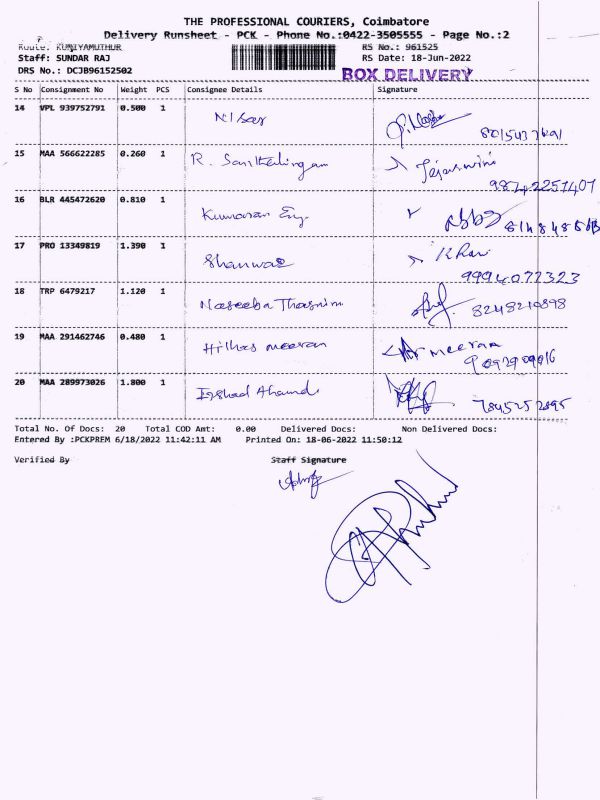 THE PROFESSIONAL COURIERS, Coimbatore
Delivery Runsheet - PCK - Phone No.:0422-3505555 - Page No.:2
Route: KUNIYAMUTHUR RS No.: 961525
Staff: SUNDAR RAJ RS Date: 18-Jun-2022
DRS No.: DCJB96152502
BOX DELIVERY
S No Consignment No Weight PCS Consignee Details Signature
14 VPL 939752791 0.500 1 Nisar
15 MAA 566622285 0.260 1 R. Santhalingam Tejaswini
16 BLR 445472620 0.810 1 Kumaran Eng.
17 PRO 13349819 1.390 1 Shanwas Khan
9994072323
18 TRP 6479217 1.120 1 Naseeba Thasnim 8248210898
19 MAA 291462746 0.480 1 Hilhas meeran meeran
20 MAA 289973026 1.800 1 Irshad Ahamd
Total No. Of Docs: 20 Total COD Amt: 0.00 Delivered Docs: Non Delivered Docs:
Entered By :PCKPREM 6/18/2022 11:42:11 AM Printed On: 18-06-2022 11:50:12
Verified By Staff Signature